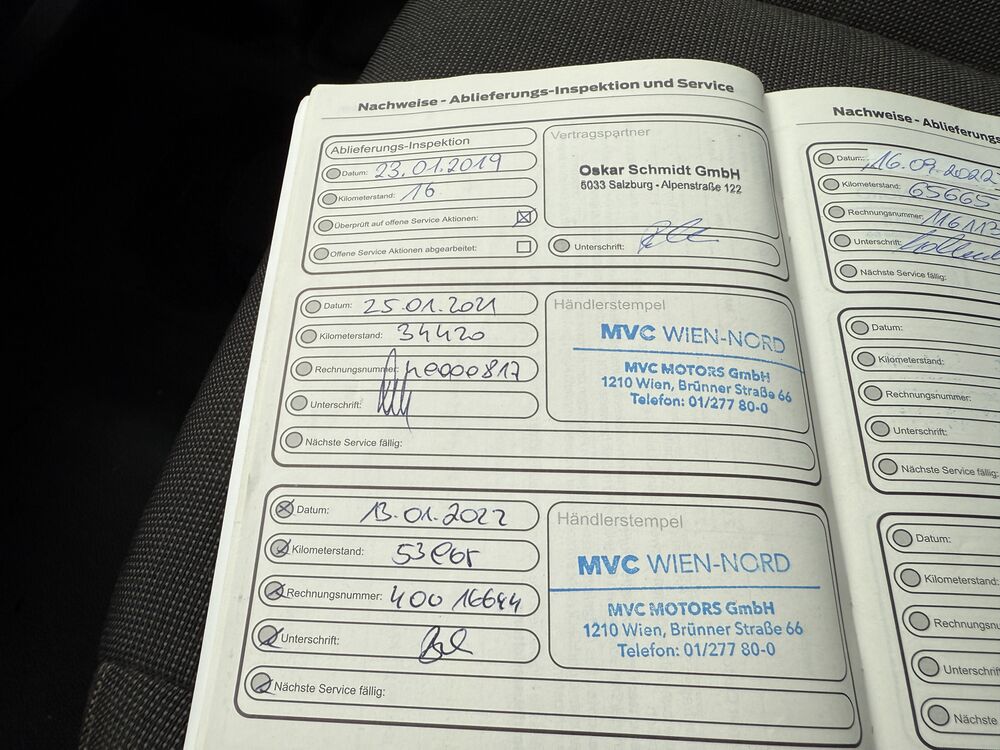 Nachweise - Ablieferungs-Inspektion und Service
Ablieferungs-Inspektion
Datum: 23.01.2019
Kilometerstand: 16
Überprüft auf offene Service Aktionen:
Offene Service Aktionen abgearbeitet:
Vertragspartner
Oskar Schmidt GmbH
5033 Salzburg - Alpenstraße 122
Unterschrift:
Datum: 25.01.2021
Kilometerstand: 34420
Rechnungsnummer:
Unterschrift:
Nächste Service fällig:
Händlerstempel
MVC WIEN-NORD
MVC MOTORS GmbH
1210 Wien, Brünner Straße 66
Telefon: 01/277 80-0
Datum: 13.01.2022
Kilometerstand:
Rechnungsnummer: 400 16644
Unterschrift:
Nächste Service fällig:
Händlerstempel
MVC WIEN-NORD
MVC MOTORS GmbH
1210 Wien, Brünner Straße 66
Telefon: 01/277 80-0
Nachweise - Ablieferungs
Datum: 16.09.2022
Kilometerstand: 65665
Rechnungsnummer:
Unterschrift:
Nächste Service fällig:
Datum:
Kilometerstand:
Rechnungsnummer:
Unterschrift:
Nächste Service fällig:
Datum:
Kilometerstand:
Rechnungsnu
Unterschrift:
Nächste